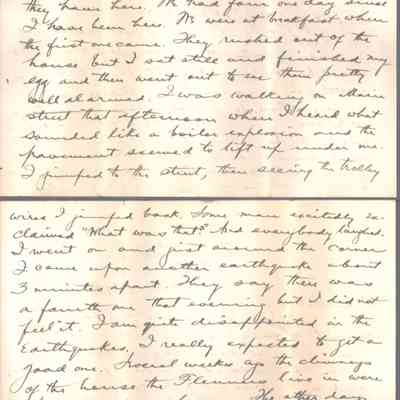 they have here. We had four one day since
I have been here. We were at breakfast when
the first one came. They rushed out of the
house but I sat still and finished my
egg and then went out to see them pretty
well alarmed. I was walking on Main
street that afternoon when I heard what
sounded like a boiler explosion and the
pavement seemed to lift up under me.
I jumped to the street, then seeing the trolley
wires I jumped back. Some man excitedly ex-
claimed "What was that?" And everybody laughed.
I went on and just around the corner
I came upon another earthquake about
3 minutes apart. They say there was
a fourth one that evening but I did not
feel it. I am quite disappointed in the
Earthquakes, I really expected to get a
good one. Several weeks ago the chimneys
of the house the Flemings live in were
The other day